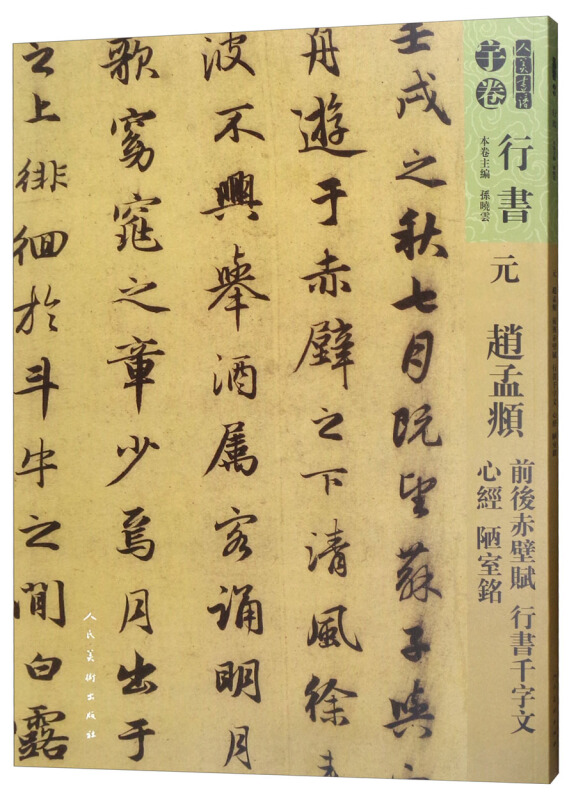 人美書譜
卷
行書
本卷主編 孫曉雲
元 趙孟頫
前後赤壁賦 行書千字文
心經 陋室銘
壬戌之秋七月既望蘇子與
舟遊于赤壁之下清風徐
波不興舉酒属客誦明月
歌窈窕之章少焉月出于
之上徘徊於斗牛之間白露
人民美術出版社